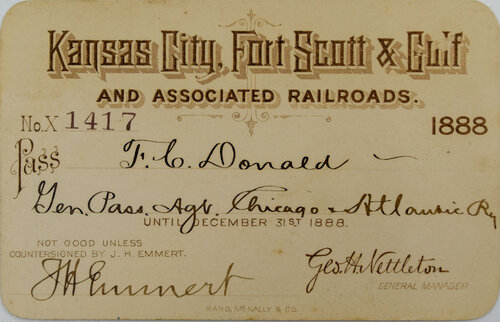 Kansas City, Fort Scott & Gulf
AND ASSOCIATED RAILROADS.
No. X 1417 1888
Pass F. C. Donald
Gen. Pass. Agt. Chicago & Atlantic Ry
UNTIL DECEMBER 31ST 1888.
NOT GOOD UNLESS
COUNTERSIGNED BY J. H. EMMERT.
J H Emmert
Geo. H. Nettleton
GENERAL MANAGER
RAND, MCNALLY & CO.